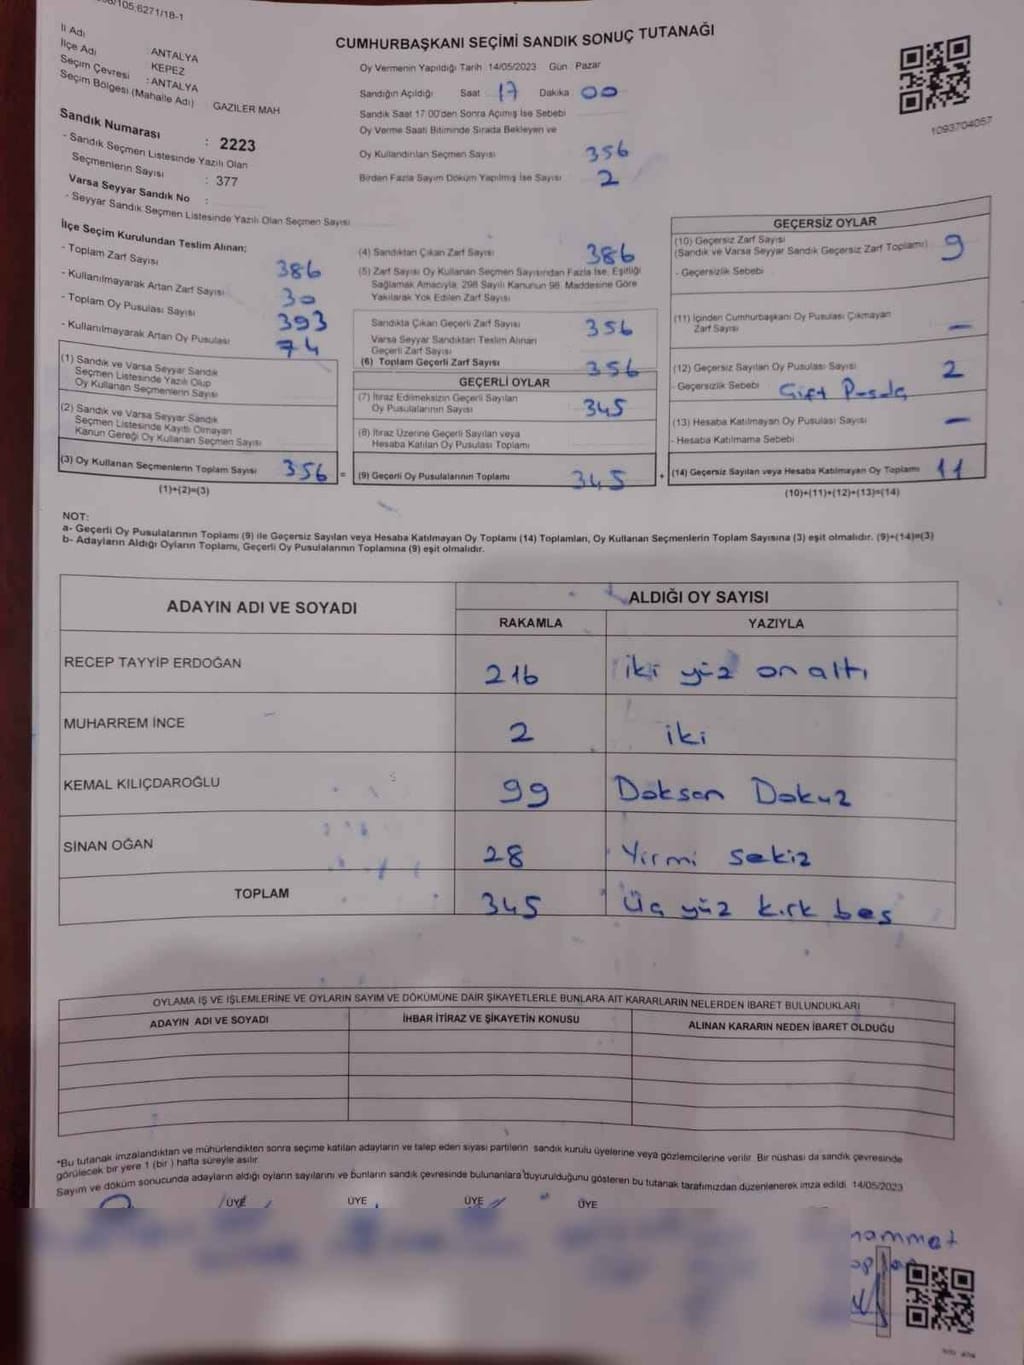 105:6271/18-1
CUMHURBAŞKANI SEÇİMİ SANDIK SONUÇ TUTANAĞI
İl Adı : ANTALYA
İlçe Adı : KEPEZ
Seçim Çevresi : ANTALYA
Seçim Bölgesi (Mahalle Adı) GAZİLER MAH
Sandık Numarası : 2223
- Sandık Seçmen Listesinde Yazılı Olan
Seçmenlerin Sayısı : 377
Varsa Seyyar Sandık No :
- Seyyar Sandık Seçmen Listesinde Yazılı Olan Seçmen Sayısı
Oy Vermenin Yapıldığı Tarih 14/05/2023 Gün Pazar
Sandığın Açıldığı Saat 17 Dakika 00
Sandık Saat 17:00'den Sonra Açılmış İse Sebebi
Oy Verme Saati Bitiminde Sırada Bekleyen ve
Oy Kullandırılan Seçmen Sayısı 356
Birden Fazla Sayım Döküm Yapılmış İse Sayısı 2
1093704057
İlçe Seçim Kurulundan Teslim Alınan;
- Toplam Zarf Sayısı 386
- Kullanılmayarak Artan Zarf Sayısı 30
- Toplam Oy Pusulası Sayısı 393
- Kullanılmayarak Artan Oy Pusulası 74
(1) Sandık ve Varsa Seyyar Sandık
Seçmen Listesinde Yazılı Olup
Oy Kullanan Seçmenlerin Sayısı
(2) Sandık ve Varsa Seyyar Sandık
Seçmen Listesinde Kayıtlı Olmayan
Kanun Gereği Oy Kullanan Seçmen Sayısı
(3) Oy Kullanan Seçmenlerin Toplam Sayısı 356 =
(1)+(2)=(3)
(4) Sandıktan Çıkan Zarf Sayısı 386
(5) Zarf Sayısı Oy Kullanan Seçmen Sayısından Fazla İse, Eşitliği
Sağlamak Amacıyla, 298 Sayılı Kanunun 98. Maddesine Göre
Yakılarak Yok Edilen Zarf Sayısı
Sandıkta Çıkan Geçerli Zarf Sayısı 356
Varsa Seyyar Sandıktan Teslim Alınan
Geçerli Zarf Sayısı
(6) Toplam Geçerli Zarf Sayısı 356
GEÇERLİ OYLAR
(7) İtiraz Edilmeksizin Geçerli Sayılan
Oy Pusulalarının Sayısı 345
(8) İtiraz Üzerine Geçerli Sayılan veya
Hesaba Katılan Oy Pusulası Toplamı
(9) Geçerli Oy Pusulalarının Toplamı 345 +
GEÇERSİZ OYLAR
(10) Geçersiz Zarf Sayısı
(Sandık ve Varsa Seyyar Sandık Geçersiz Zarf Toplamı) 9
- Geçersizlik Sebebi
(11) İçinden Cumhurbaşkanı Oy Pusulası Çıkmayan
Zarf Sayısı –
(12) Geçersiz Sayılan Oy Pusulası Sayısı 2
- Geçersizlik Sebebi Çift Pusula
(13) Hesaba Katılmayan Oy Pusulası Sayısı –
- Hesaba Katılmama Sebebi
(14) Geçersiz Sayılan veya Hesaba Katılmayan Oy Toplamı 11
(10)+(11)+(12)+(13)=(14)
NOT:
a- Geçerli Oy Pusulalarının Toplamı (9) ile Geçersiz Sayılan veya Hesaba Katılmayan Oy Toplamı (14) Toplamları, Oy Kullanan Seçmenlerin Toplam Sayısına (3) eşit olmalıdır. (9)+(14)=(3)
b- Adayların Aldığı Oyların Toplamı, Geçerli Oy Pusulalarının Toplamına (9) eşit olmalıdır.
ADAYIN ADI VE SOYADI
ALDIĞI OY SAYISI
RAKAMLA YAZIYLA
RECEP TAYYİP ERDOĞAN 216 iki yüz on altı
MUHARREM İNCE 2 iki
KEMAL KILIÇDAROĞLU 99 Doksan Dokuz
SİNAN OĞAN 28 Yirmi sekiz
TOPLAM 345 Üç yüz kırk beş
OYLAMA İŞ VE İŞLEMLERİNE VE OYLARIN SAYIM VE DÖKÜMÜNE DAİR ŞİKAYETLERLE BUNLARA AİT KARARLARIN NELERDEN İBARET BULUNDUKLARI
ADAYIN ADI VE SOYADI İHBAR İTİRAZ VE ŞİKAYETİN KONUSU ALINAN KARARIN NEDEN İBARET OLDUĞU
*Bu tutanak imzalandıktan ve mühürlendikten sonra seçime katılan adayların ve talep eden siyasi partilerin sandık kurulu üyelerine veya gözlemcilerine verilir. Bir nüshası da sandık çevresinde
görülecek bir yere 1 (bir) hafta süreyle asılır.
Sayım ve döküm sonucunda adayların aldığı oyların sayılarını ve bunların sandık çevresinde bulunanlara duyurulduğunu gösteren bu tutanak tarafımızdan düzenlenerek imza edildi. 14/05/2023
ÜYE ÜYE ÜYE ÜYE
hammet